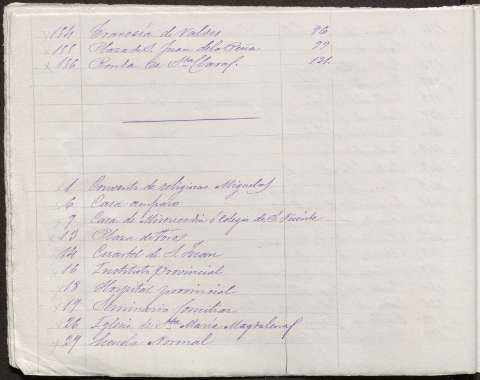 154 Travesía de Valdés 96
155 Plaza de S. Juan de la Peña 99
156 Ronda de Sta Clara. 121
1 Convento de religiosas Miguelas
6 Casa amparo
9 Casa de Misericordia é Colegio de S. Vicente
13 Plaza de toros
14 Cuartel de S. Juan
16 Instituto provincial
18 Hospital provincial
19 Seminario conciliar
26 Iglesia de Sta Maria Magdalena
29 Escuela Normal